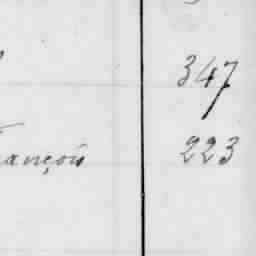 347
ançois 223